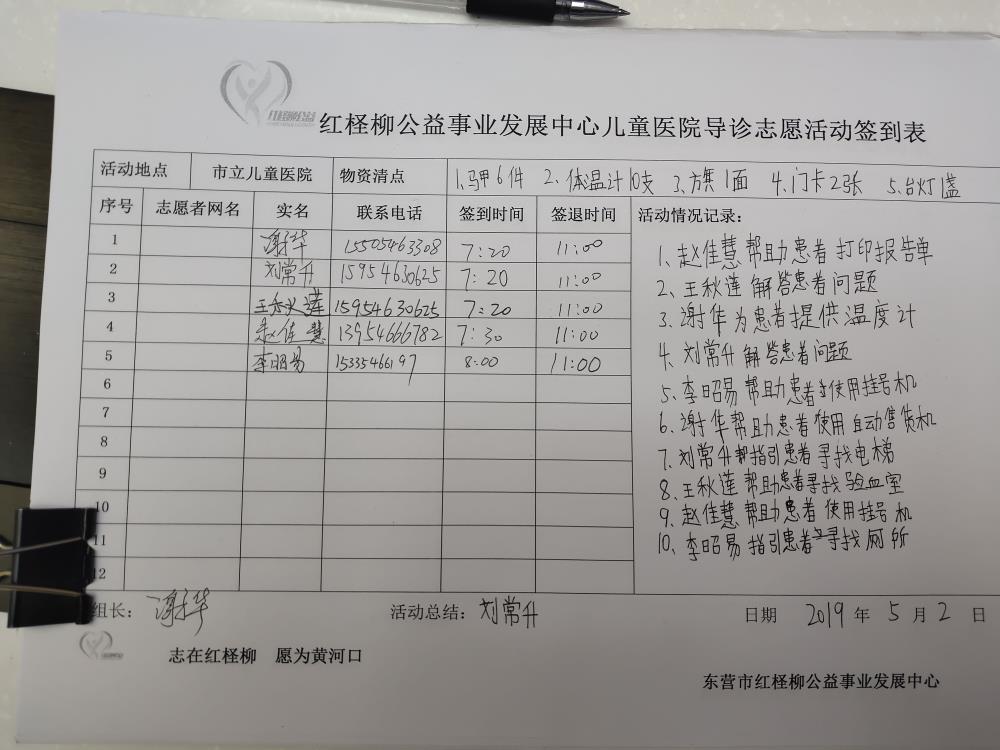 红柽柳公益
红柽柳公益事业发展中心儿童医院导诊志愿活动签到表
活动地点 市立儿童医院 物资清点 1、马甲6件 2、体温计10支 3、方旗1面 4、门卡2张 5、台灯1盏
序号 志愿者网名 实名 联系电话 签到时间 签退时间 活动情况记录：
1 谢华 15505463308 7:20 11:00
2 刘常升 15954630625 7:20 11:00
3 王秋莲 15954630625 7:20 11:00
4 赵佳慧 13954666782 7:30 11:00
5 李昭易 15335466197 8:00 11:00
6
7
8
9
10
11
12
1、赵佳慧帮助患者打印报告单
2、王秋莲解答患者问题
3、谢华为患者提供温度计
4、刘常升解答患者问题
5、李昭易帮助患者使用挂号机
6、谢华帮助患者使用自动售货机
7、刘常升指引患者寻找电梯
8、王秋莲帮助患者寻找验血室
9、赵佳慧帮助患者使用挂号机
10、李昭易指引患者寻找厕所
组长：谢华 活动总结：刘常升 日期 2019年5月2日
志在红柽柳 愿为黄河口
东营市红柽柳公益事业发展中心